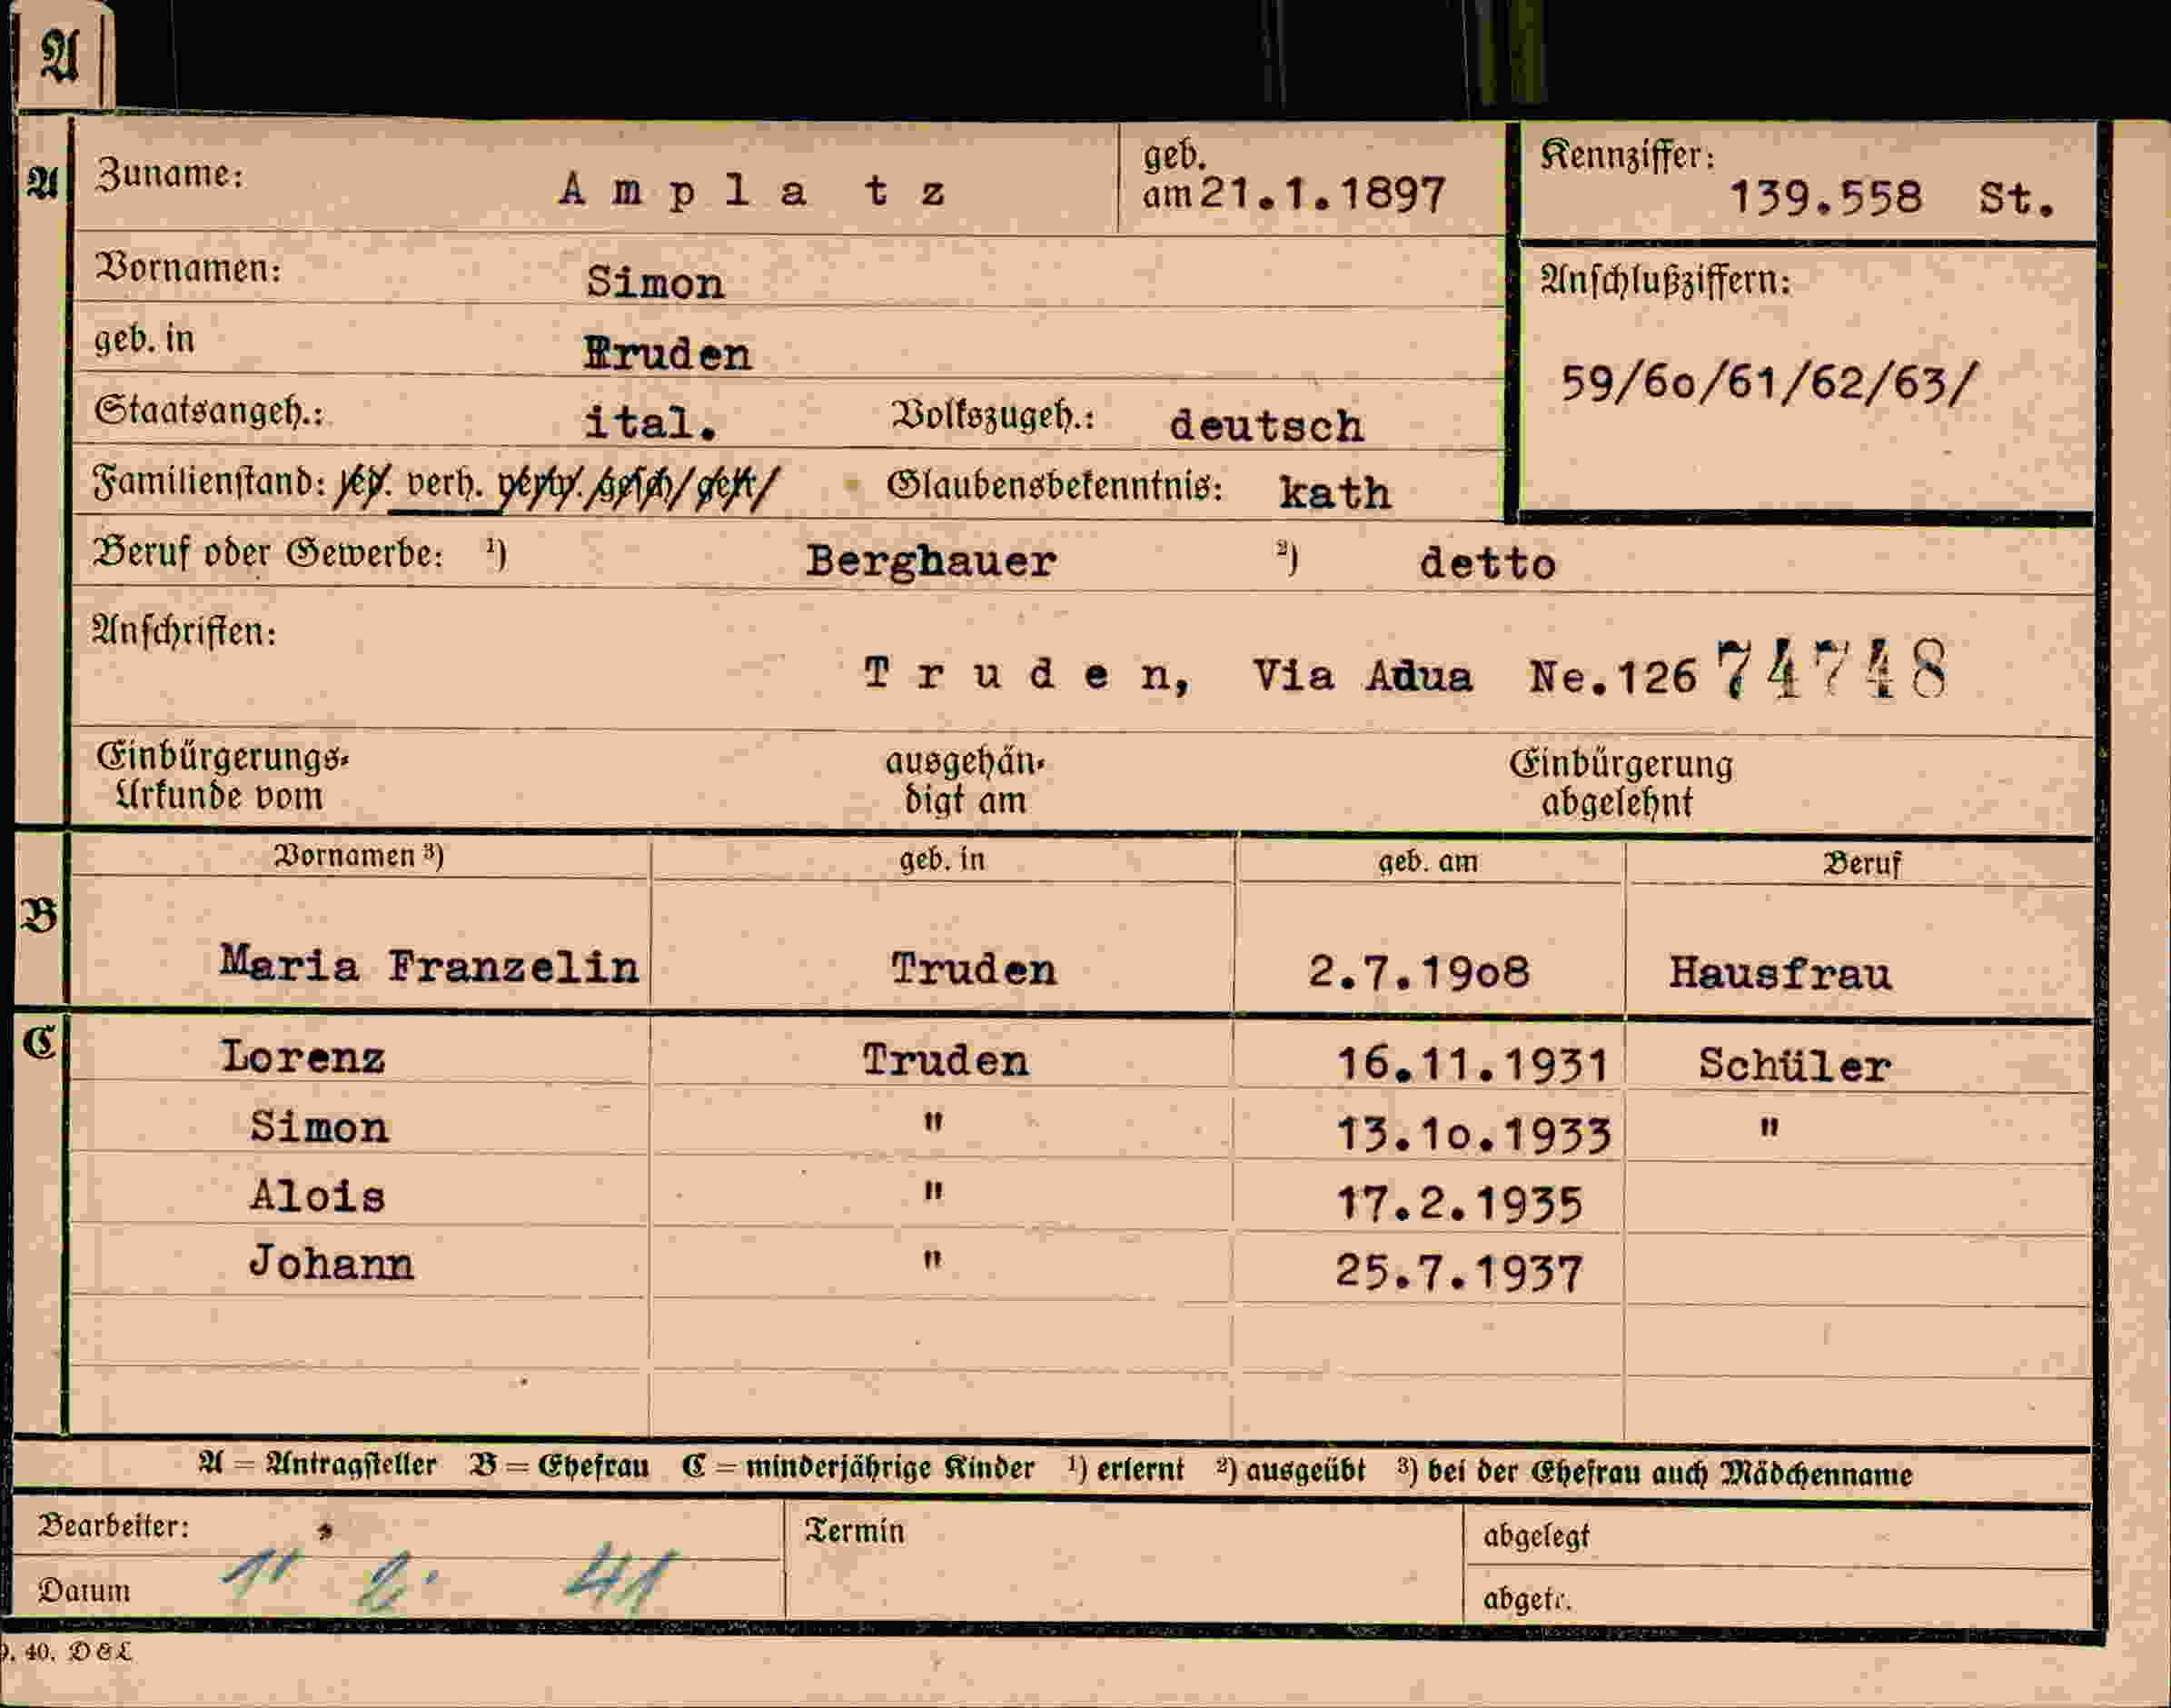 A
A
Zuname: Amplatz geb. am 21.1.1897 Kennziffer: 139.558 St.
Vornamen: Simon Anschlußziffern:
geb. in Truden
59/6o/61/62/63/
Staatsangeh.: ital. Volkszugeh.: deutsch
Familienstand: led. verh. verw. gesch. getr. Glaubensbekenntnis: kath
Beruf oder Gewerbe: ¹) Berghauer ²) detto
Anschriften:
Truden, Via Adua Ne.126 74748
Einbürgerungs- ausgehän- Einbürgerung
Urkunde vom digt am abgelehnt
Vornamen ³) geb. in geb. am Beruf
B
Maria Franzelin Truden 2.7.19o8 Hausfrau
C
Lorenz Truden 16.11.1931 Schüler
Simon " 13.1o.1933 "
Alois " 17.2.1935
Johann " 25.7.1937
A = Antragsteller B = Ehefrau C = minderjährige Kinder ¹) erlernt ²) ausgeübt ³) bei der Ehefrau auch Mädchenname
Bearbeiter: Termin abgelegt
Datum 2. 41 abgetr.
40. D&L